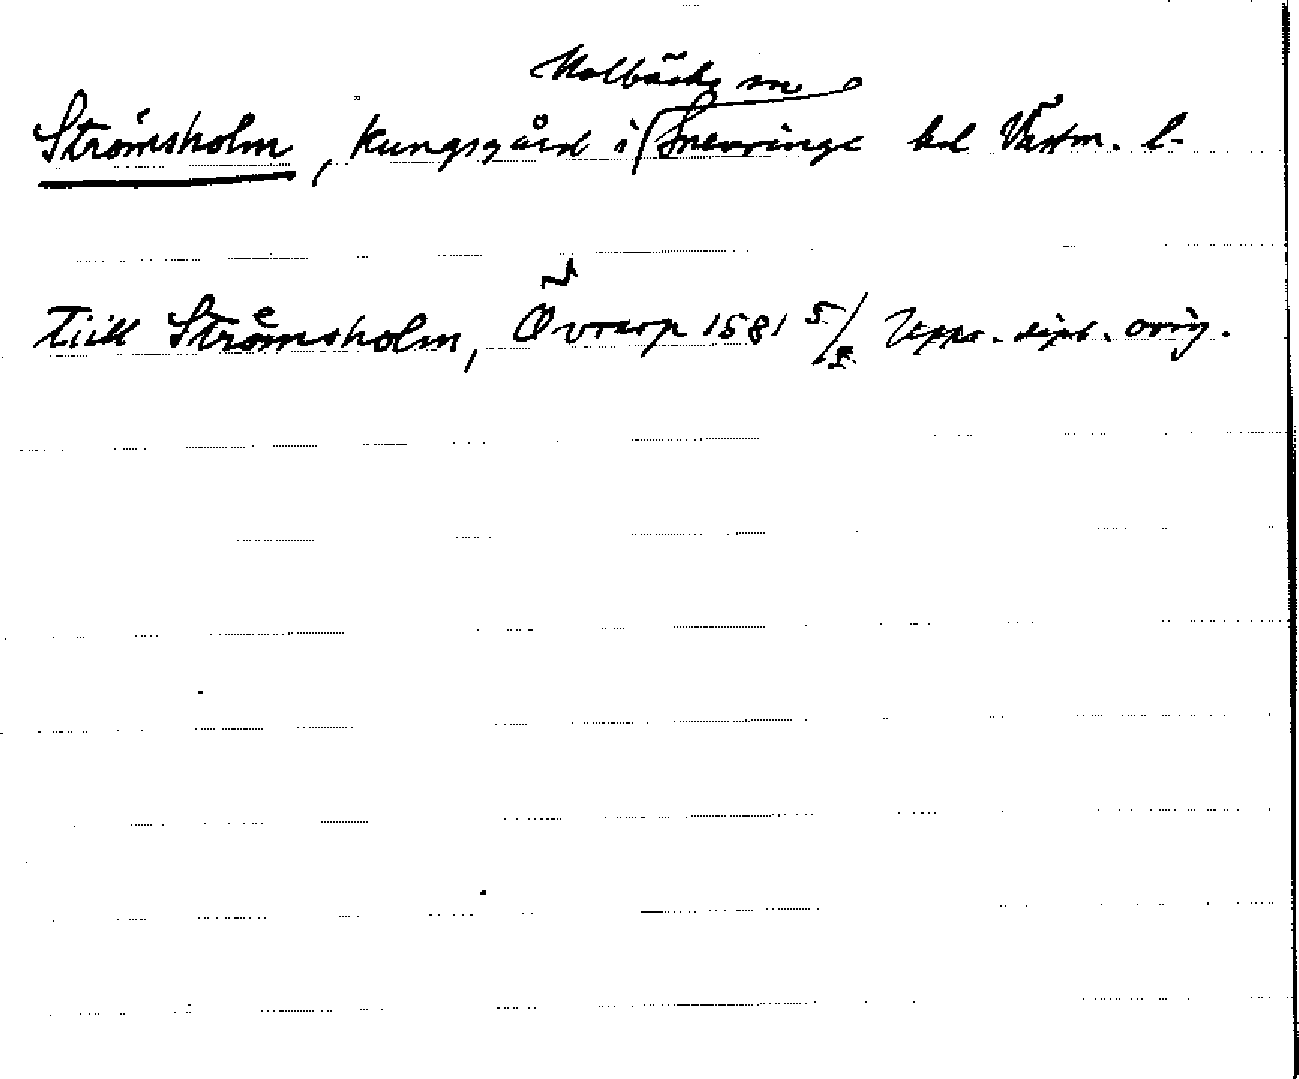 Kolbäcks sn
Strömsholm, kungsgård i Snevringe hd Västm. l.
Tiill Strömsholm, Övrarp 1581 5/5 Upps. dipl. orig.